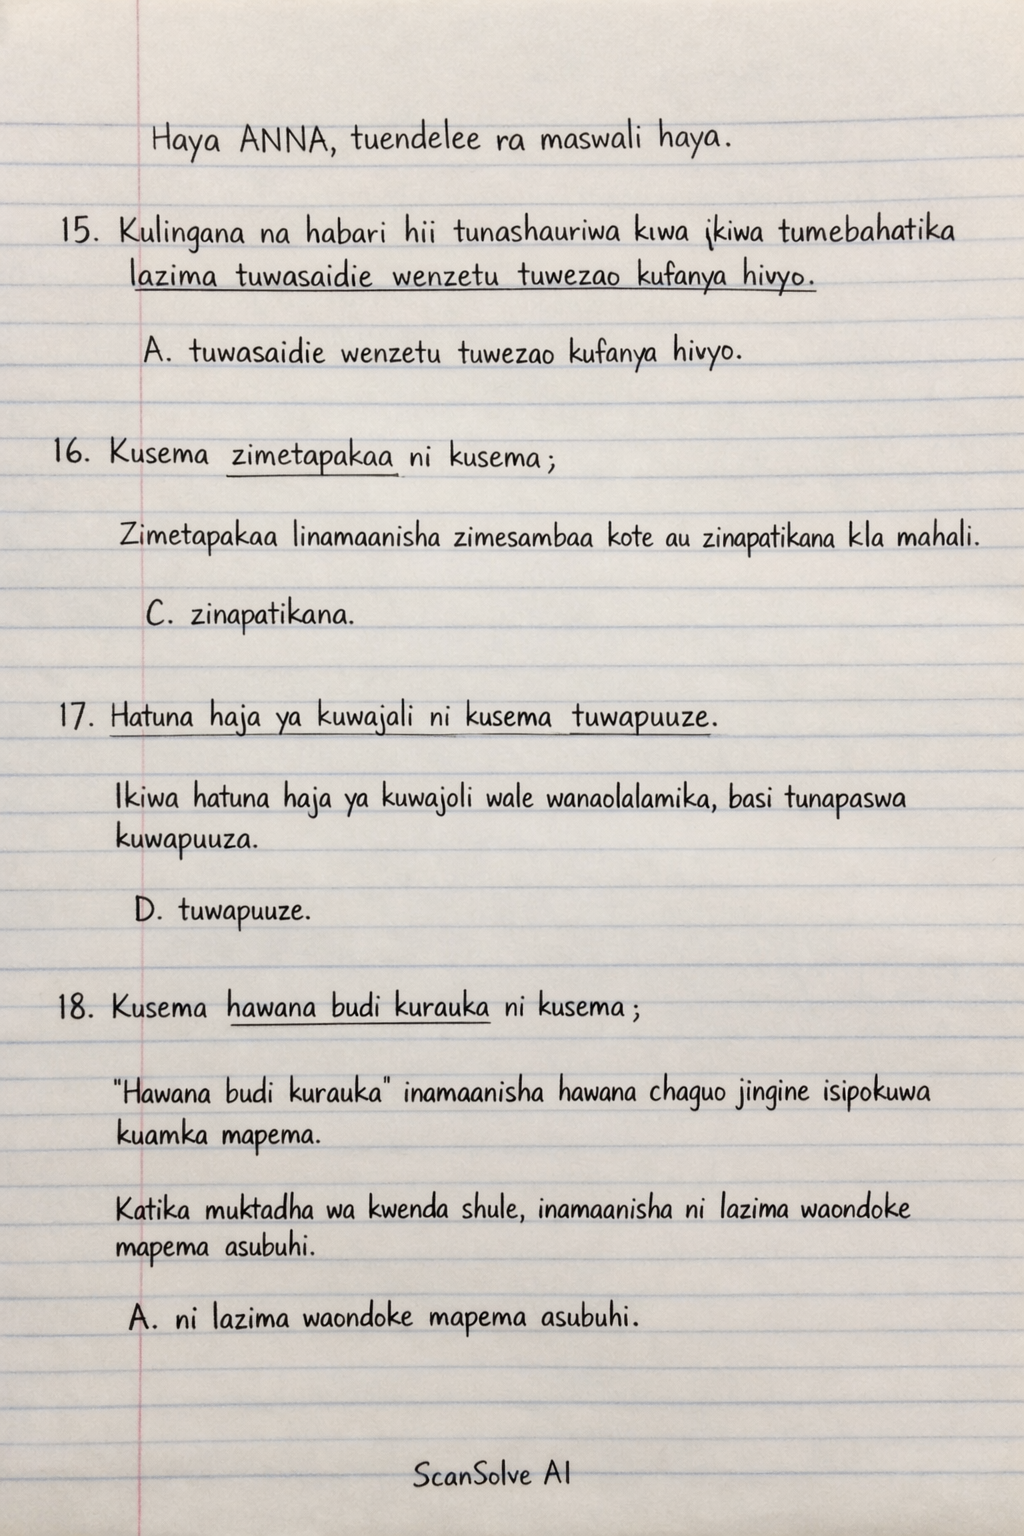 Haya ANNA, tuendelee ra maswali haya.
15. Kulingana na habari hii tunashauriwa kıwa ikiwa tumebahatika
lazima tuwasaidie wenzetu tuwezao kufanya hivyo.
A. tuwasaidie wenzetu tuwezao kufanya hivyo.
16. Kusema zimetapakaa ni kusema;
Zimetapakaa linamaanisha zimesambaa kote au zinapatikana kla mahali.
C. zinapatikana.
17. Hatuna haja ya kuwajali ni kusema tuwapuuze.
Ikiwa hatuna haja ya kuwajoli wale wanaolalamika, basi tunapaswa
kuwapuuza.
D. tuwapuuze.
18. Kusema hawana budi kurauka ni kusema;
"Hawana budi kurauka" inamaanisha hawana chaguo jingine isipokuwa
kuamka mapema.
Katika muktadha wa kwenda shule, inamaanisha ni lazima waondoke
mapema asubuhi.
A. ni lazima waondoke mapema asubuhi.
ScanSolve AI